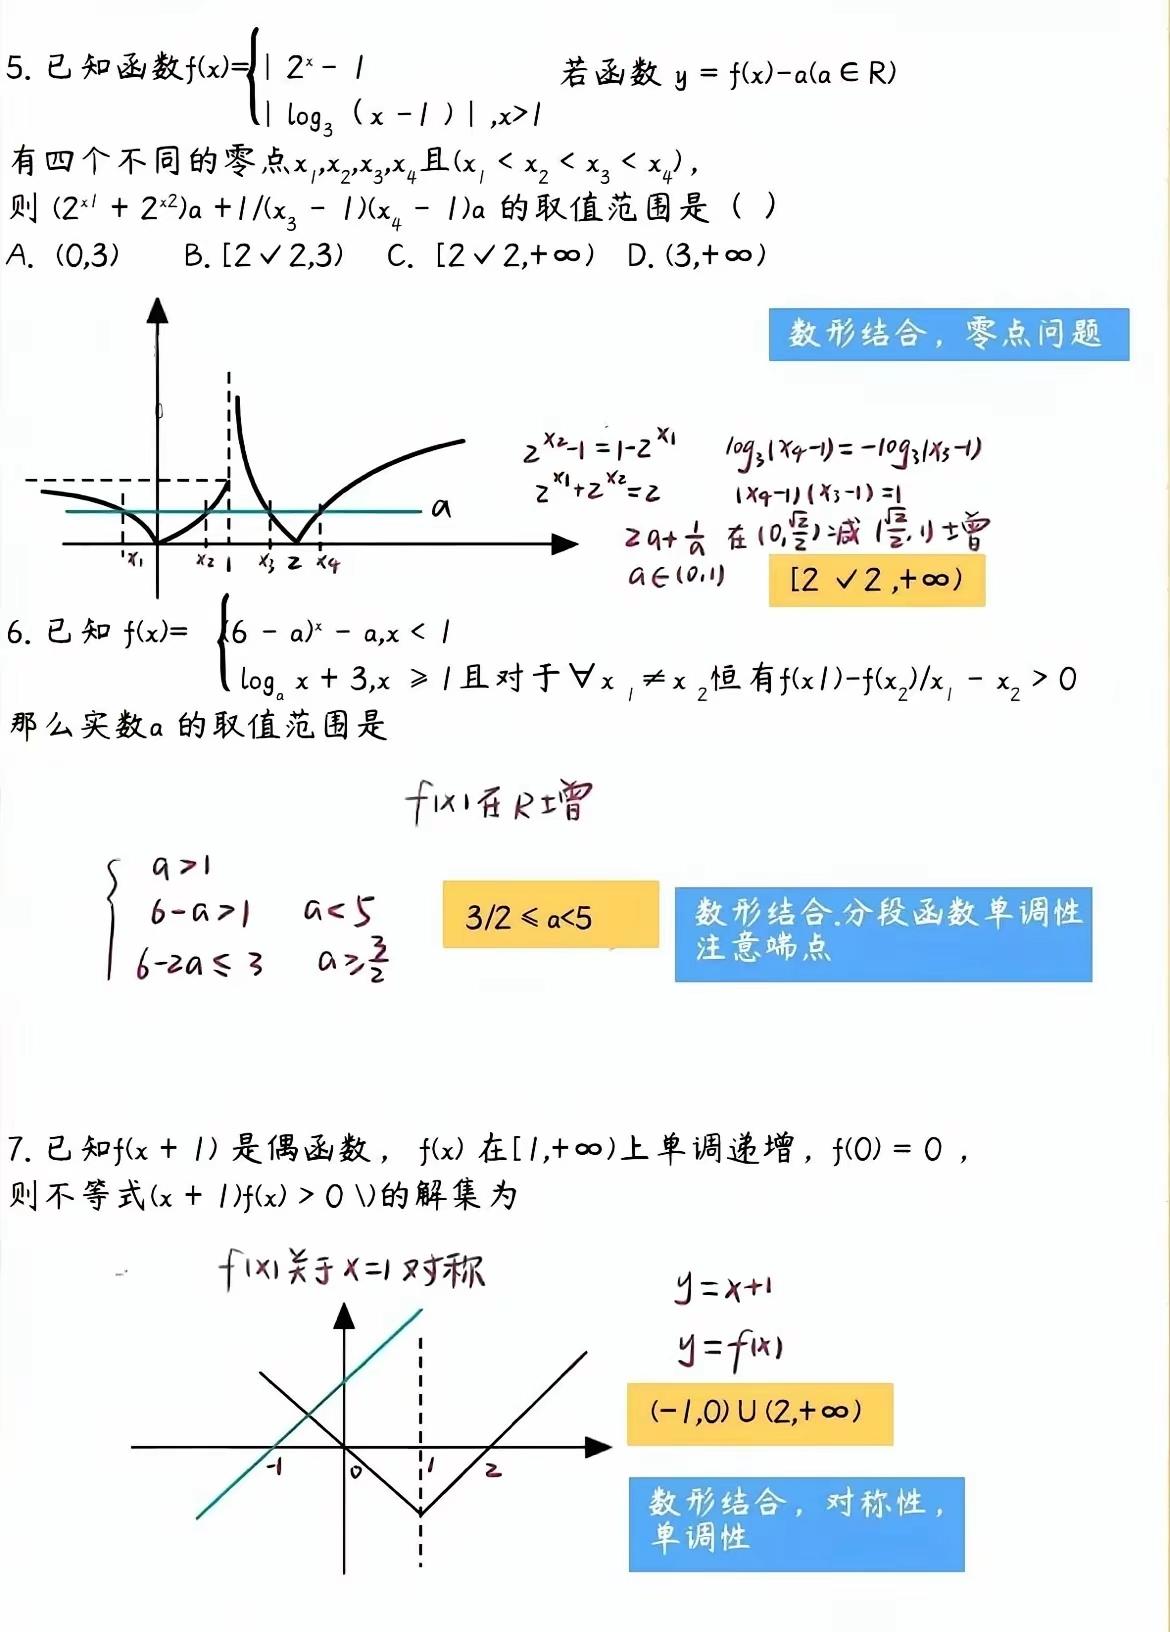 5. 已知函数f(x)={| 2ˣ - 1 若函数 y = f(x)-a(a∈R)
| log₃ (x -1 )| ,x>1
有四个不同的零点x₁,x₂,x₃,x₄且(x₁ < x₂ < x₃ < x₄),
则 (2ˣ¹ + 2ˣ²)a +1/(x₃ - 1)(x₄ - 1)a 的取值范围是 ( )
A. (0,3) B. [2✓2,3) C. [2✓2,+∞) D. (3,+∞)
数形结合，零点问题
2^x₂-1=1-2^x₁ log₃(x₄-1)=-log₃(x₃-1)
2^x₁+2^x₂=2 (x₄-1)(x₃-1)=1
a
2a+1/a 在(0,√2/2)减 (√2/2,1)上增
x₁ x₂ 1 x₃ 2 x₄
a∈(0,1) [2 ✓2 ,+∞)
6. 已知 f(x)= {(6 - a)ˣ - a,x < 1
logₐ x + 3,x ⩾ 1且对于∀x ₁ ≠x ₂恒有f(x1)-f(x₂)/x₁ - x₂ > 0
那么实数a 的取值范围是
f(x)在R上增
a>1
6-a>1 a<5
6-2a≤3 a≥3/2
3/2 ⩽ a<5
数形结合.分段函数单调性
注意端点
7. 已知f(x + 1) 是偶函数，f(x) 在[1,+∞)上单调递增，f(0) = 0 ，
则不等式(x + 1)f(x) > 0 \)的解集为
f(x)关于x=1对称
y=x+1
y=f(x)
(-1,0)∪(2,+∞)
-1 0 1 2
数形结合，对称性，
单调性